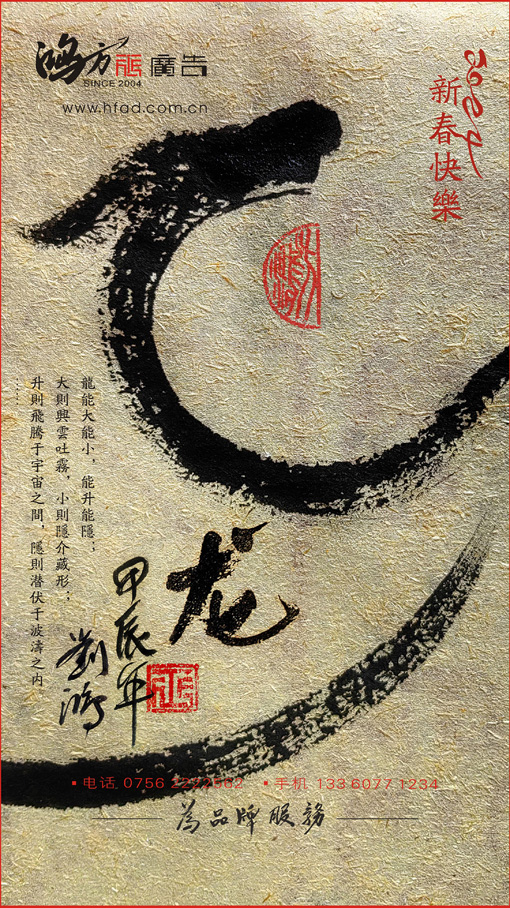 鸿方 廣告
SINCE 2004
www.hfad.com.cn
2024
新春快樂
龍能大能小，能升能隱；
大則興雲吐霧，小則隱介藏形；
升則飛騰于宇宙之間，隱則潛伏于波濤之内。
……
龙
甲辰年
劉鴻
電话 0756 2272662 手机 133 6077 1234
為品牌服務